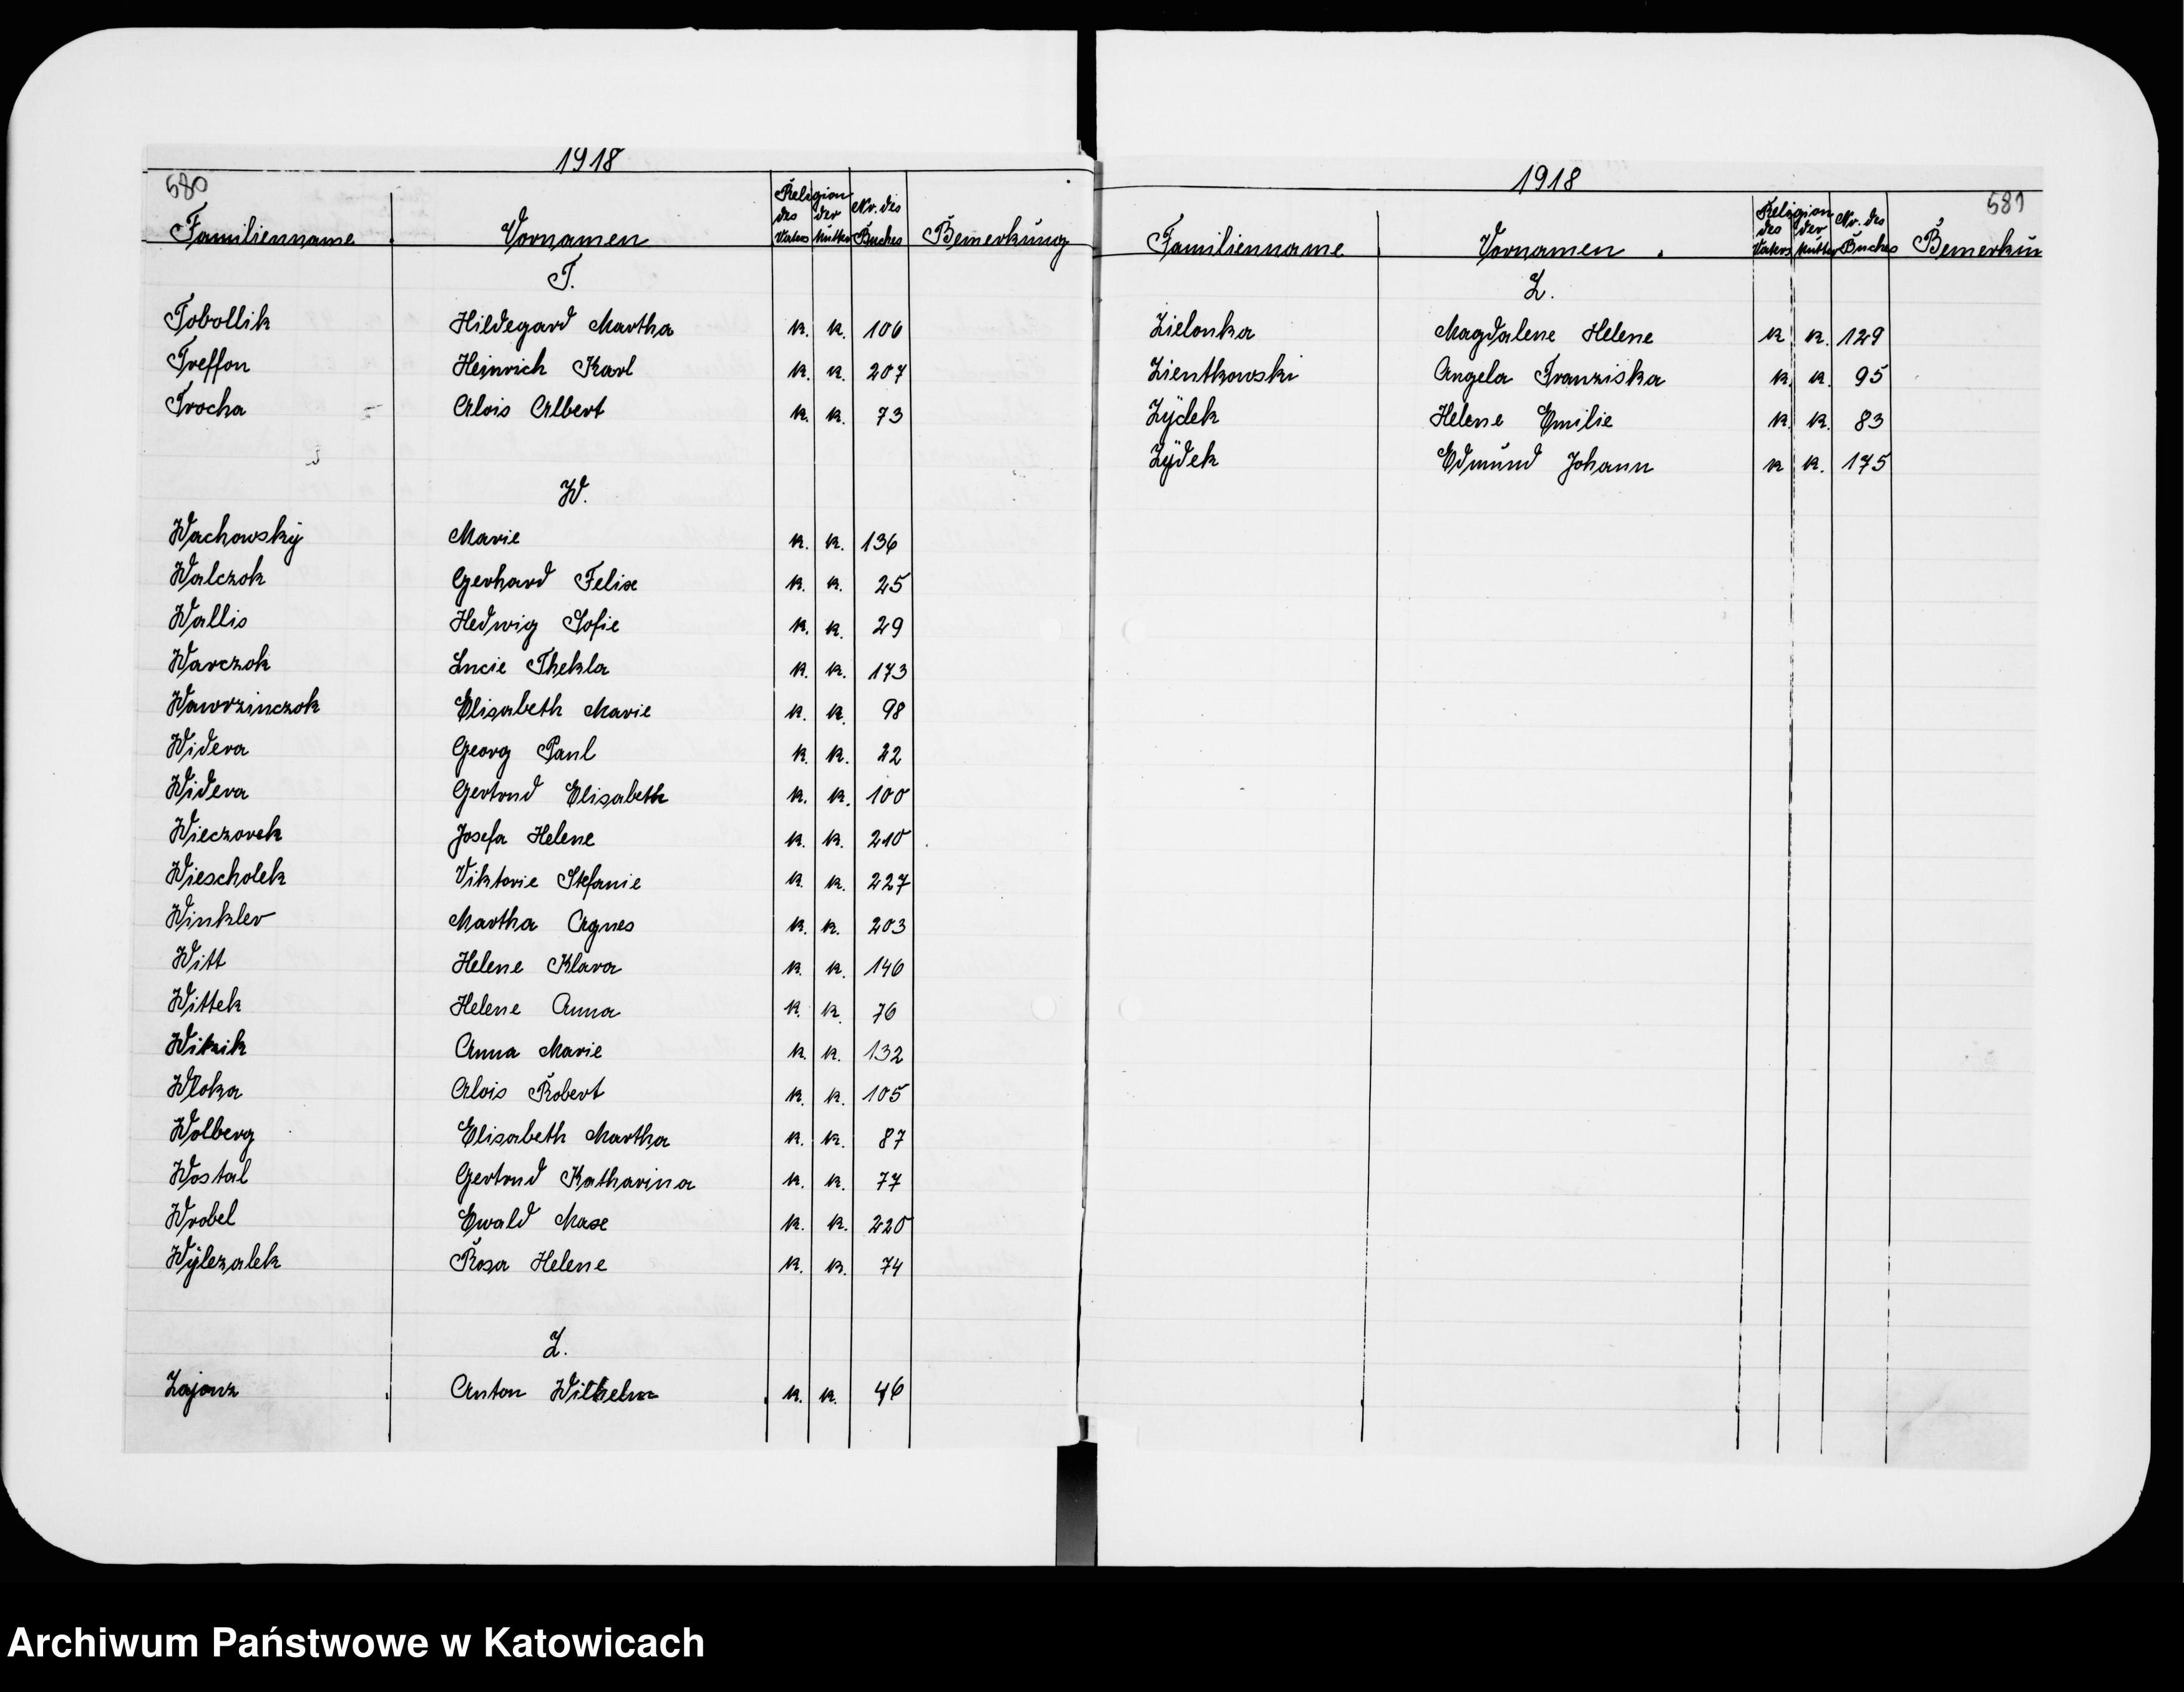 1918
580
Familienname Vornamen Religion des Vaters der Mutter Nr. des Buches Bemerkung
T.
Tobollik Hildegard Martha k. k. 106
Treffon Heinrich Karl k. k. 207
Trocha Alois Albert k. k. 73
W.
Wachowský Marie k. k. 136
Walczok Gerhard Felix k. k. 25
Wallis Hedwig Sofie k. k. 29
Warczok Lucie Thekla k. k. 173
Wawrzinczok Elisabeth Marie k. k. 98
Widera Georg Paul k. k. 22
Widera Gertrud Elisabeth k. k. 100
Wieczorek Josefa Helene k. k. 210
Wiescholek Viktorie Stefanie k. k. 227
Winkler Martha Agnes k. k. 203
Witt Helene Klara k. k. 146
Wittek Helene Anna k. k. 76
Anna Marie k. k. 132
Wloka Alois Robert k. k. 105
Wolberg Elisabeth Martha k. k. 87
Wostal Gertrud Katharina k. k. 77
Wrobel Ewald Max k. k. 220
Wÿlezalek Rosa Helene k. k. 74
Z.
Zajonz Anton Wilhelm k. k. 46
1918
581
Familienname Vornamen Religion des Vaters der Mutter Nr. des Buches Bemerkun
Z.
Zielonka Magdalene Helene k k. 129
Zientkowski Angela Franziska k. k. 95
Zÿdek Helene Emilie k. k. 83
Zÿdek Edmund Johann k k. 175
Archiwum Państwowe w Katowicach